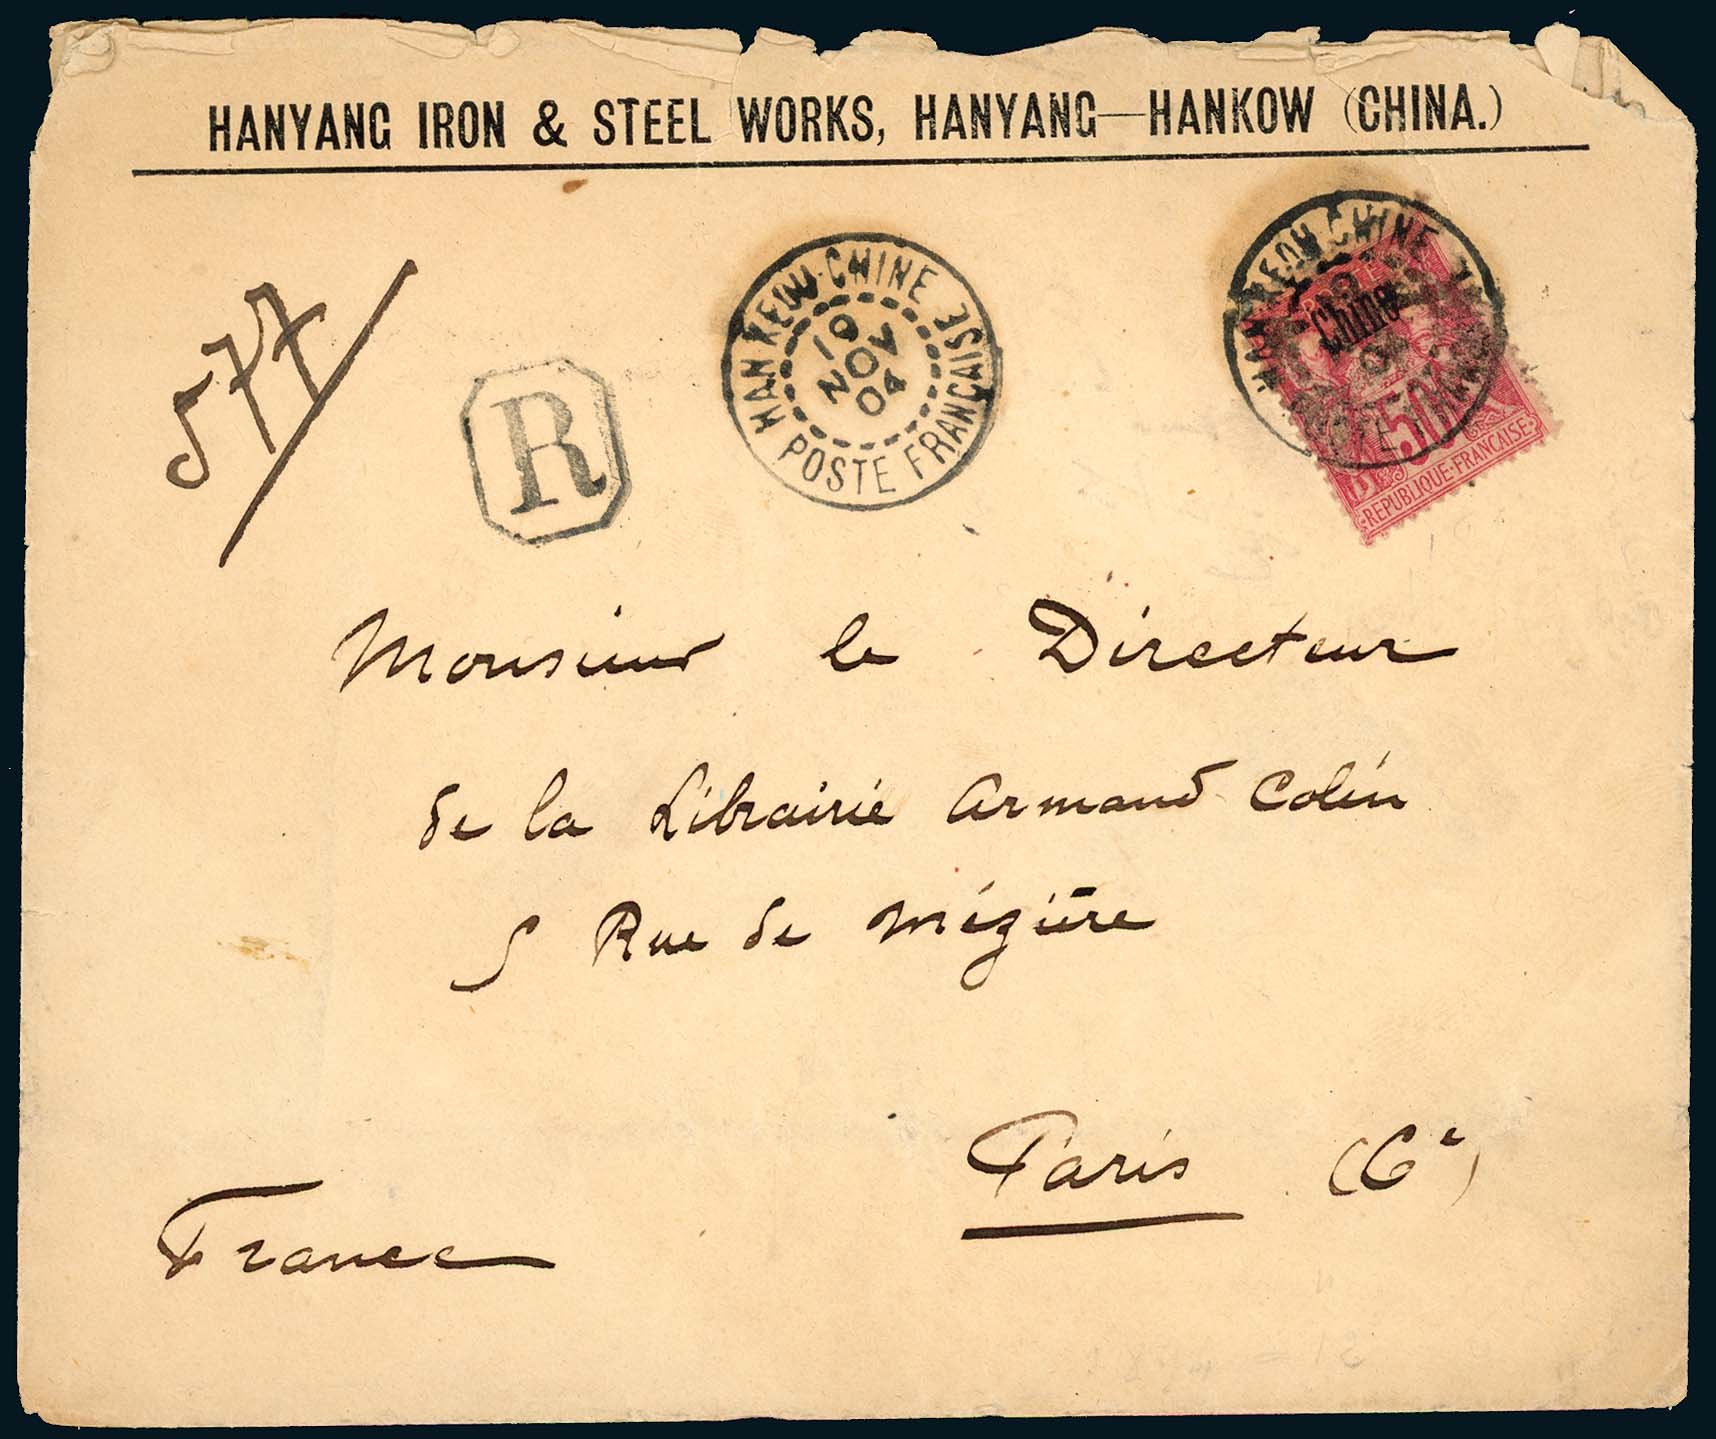 HANYANG IRON & STEEL WORKS, HANYANG—HANKOW (CHINA.)
577
R
HAN KEOU-CHINE
10
NOV
04
POSTE FRANÇAISE
HAN KEOU-CHINE
Chine
50
REPUBLIQUE·FRANÇAISE·
Monsieur le Directeur
de la Librairie Armand Colin
5 Rue de Mézière
Paris (6e)
France